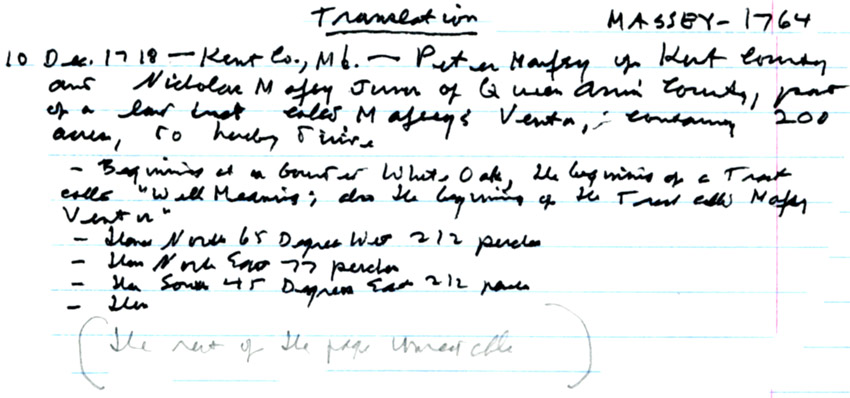 Translation MASSEY-1764
10 Dec. 1718 — Kent Co., Md. — Peter Massey of Kent County
and Nicholas Massey Junr of Queen Anns County, part
of a land tract called Massey's Ventur, containing 200
acres, to
- Beginning at a Bounded White Oak, the beginning of a Tract
calls "Well Meaning; also the beginning of the Tract calls Massey
Ventur"
- Thence North 65 Degree West 212 perches
- Then North East 77 perches
- Then South 45 Degrees East 212
- Then
(The rest of the page unreadable)